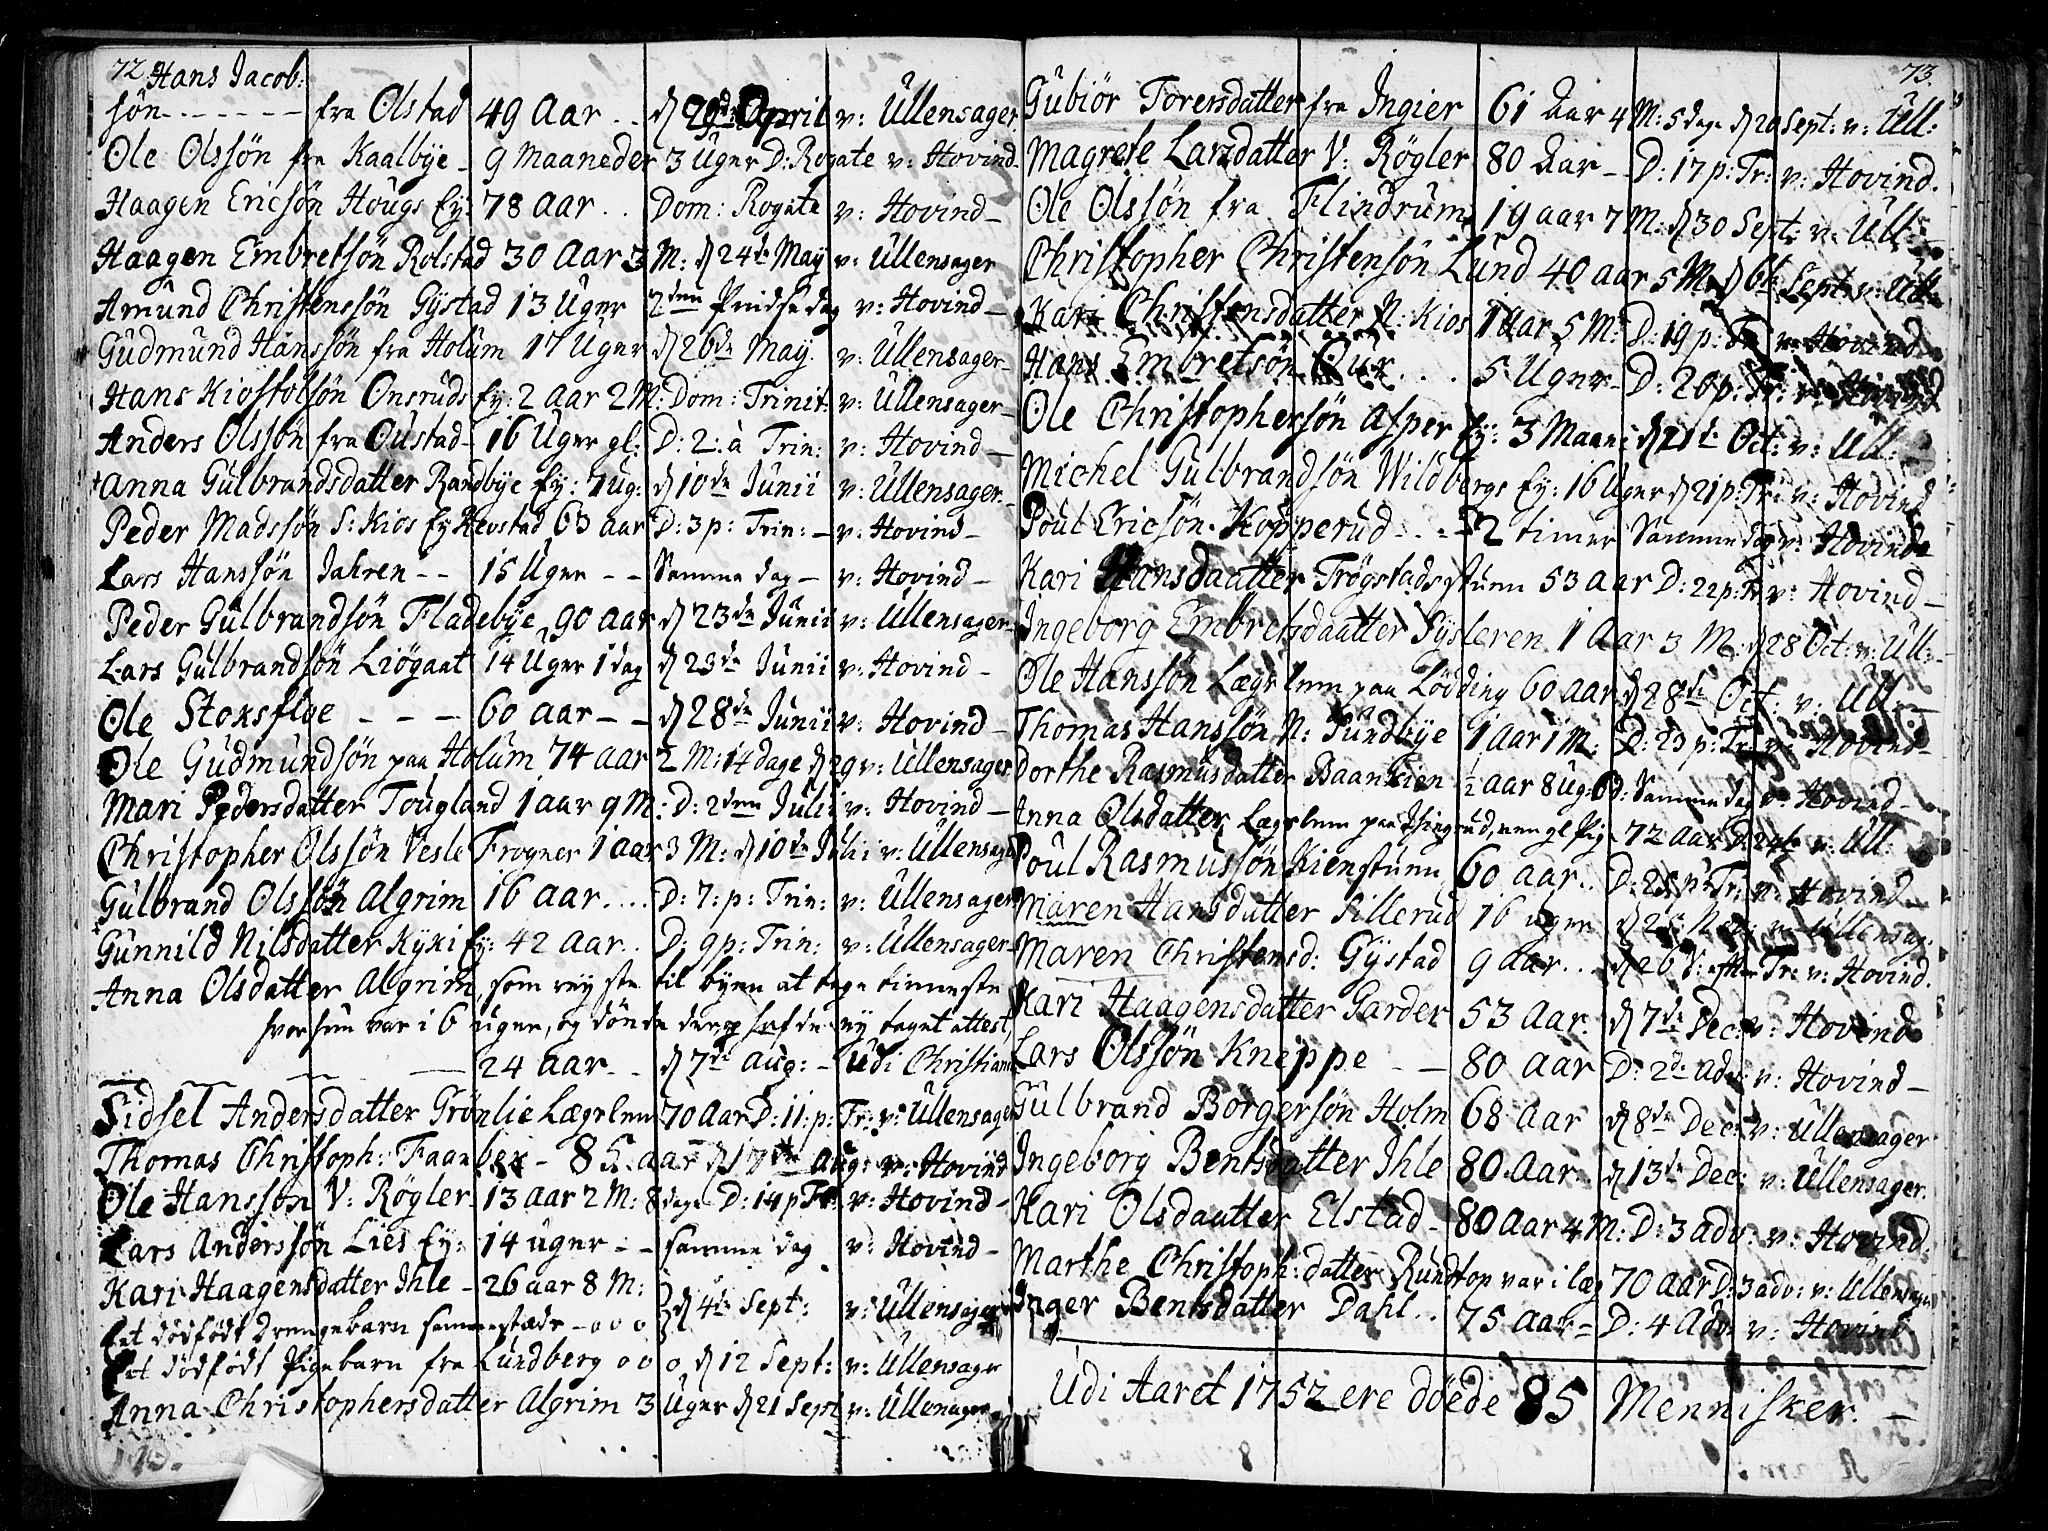 72 Hans Jacob:
søn - - - - - - fra Olstad 49 Aar . . d 29de April v: Ullensager.
Ole Olssøn fra Kaalbye - 9 Maaneder 3 Uger D: Rogate v: Hovind -
Haagen Ericsøn Hougs Ey: 78 aar . . Dom: Rogate v: Hovind -
Haagen Embretsøn Rolstad 30 Aar 3 M: d 24de May v: Ullensager
Amund Christenssøn Gystad 13 Uger 2den Pindse dag v: Hovind -
Gudmund Hanssøn fra Holum 17 Uger d 26de May. v: Ullensager -
Hans Kiostolsøn Onsruds Ey: 2 aar 2 M: Dom: Trinit: v: Ullensager -
Anders Olssøn fra Oustad - 16 Uger gl: D: 2: à Trin: v: Hovind -
Anna Gulbrandsdatter Randbye Ey: 1 ug: d 10de Junii v: Ullensager -
Peder Madssøn S: Kios Ey 63 aar D: 3 p: Trin: - v: Hovind -
Lars Hanssøn Jahren - - 15 Uger - - Samme dag - v: Hovind -
Peder Gulbrandsøn Fladebye 90 aar d 23de Junii v: Ullensager -
Lars Gulbrandsøn Liøgaat 14 Uger 1 dag d 23de Junii v: Hovind -
Ole Stoksfloe - - - 60 aar - - d 28de Junii v: Hovind -
Ole Gudmundsøn paa Holum 74 aar 2 M: 14 dage d 29 v: Ullensager
Mari Pedersdatter Tougland 1 aar 9 M: D: 2den Julii v: Hovind -
Christopher Olssøn Vesle Frogner 1 aar 3 M: d 10de Julii v: Ullensager
Gulbrand Olssøn Algrim 16 aar . . . . D: 7: p: Trin: v: Ullensager
Gunnild Nilsdatter Kyki Ey: 42 aar . . D: 9 p: Trin: v: Ullensager -
Anna Olsdatter Algrim, som reyste til byen at tage tienneste
hvor hun var i 6 uger, og døde der, hafde ey taget attest,
24 aar - . d 7de aug: - Udi Christiania
Sidsel Andersdatter Grønlie Lægslem 70 Aar D: 11: p: Tr: v: Ullensager
Thomas Christoph: Faanbek - 85 aar d 17de aug: v: Hovind
Ole Hanssøn V: Røgler - 13 aar 2 M: 8 dage D: 14 p Tr: v: Hovind -
Lars Anderssøn Lies Ey: 14 uger - - samme dag v: Hovind -
Kari Haagensdatter Ihle - 26 aar 8 M: d 4de Sept: v: Ullensager
Eet dødfødt Drengebarn sammestæds - o o o
Eet dødfødt Pigebarn fra Lundberg o o o d 12 Sept: v: Ullensager
Anna Christophersdatter Algrim 3 Uger d 21 Sept v: Ullensager
73.
Gubiør Toresdatter fra Ingier 61 Aar 4 M: 5 dage d 20 Sept: v: Ull:
Magrete Larsdatter V: Røgler 80 Aar - D: 17 p: Tr: v: Hovind.
Ole Olssøn fra Flindrum 19 aar 7 M: d 30 Sept: v: Ull:
Christopher Christensøn Lund 40 aar 5 M: d 6te Sept: v: Ull:
Kari Christensdatter N: Kios 1 aar 5 M: D: 19 p: Tr v: Hovind
Hans Embretsøn . . . 5 Uger - D: 20 p: Tr: v: Hovind
Ole Christophersøn Asper Ey: 3 Maan: d 21de Oct: v: Ull:
Michel Gulbrandsøn Wildbergs Ey: 16 Uger d 21 p: Tr: v: Hovind
Poul Ericsøn Kopperud - . - 2 timer Samme dag v: Hovind
Kari Hansdaatter Trøgstadstuen 53 aar D: 22 p: Tr v: Hovind -
Ingeborg Embretsdaatter Sysleren 1 Aar 3 M: d 28 Oct: v: Ull: -
Ole Hanssøn Lægslem paa Lødding 60 aar d 28de Oct. v: Ull.
Thomas Hanssøn N: Sundbye 1 aar 1 M: D: 23 p: Tr: v: Hovind -
Dorthe Rasmusdatter Baankien ½ aar 8 ug: D: Samme dag v: Hovind -
Anna Olsdatter Lægslem paa, en gl Pig. 72 aar D: 24de v: Ull:
Poul Rasmussøn Kienstuen 60 aar . . D: 25 p: Tr: v: Hovind
Maren Hansdatter Sillerud 16 uger v: Ullensag:
Maren Christensd: Gystad 9 aar . . . d 26 Tr: v: Hovind.
Kari Haagensdatter Garder 53 aar. d 7de Dec: v: Hovind
Lars Olssøn Kneppe - - 80 aar D: 2de adv: v: Hovind -
Gulbrand Borgersøn Holm 68 aar d 8de Dec: v: Ullensager
Ingeborg Bentsdatter Ihle 80 Aar. d 13de Dec: v: Ullensager.
Kari Olsdaatter Elstad - 80 aar 4 M: D: 3 adv: v: Hovind:
Marthe Christoph: datter Rundtop var i læg 70 aar D: 3 adv: v: Ullensager
Inger Bentsdatter Dahl . . 75 aar - D: 4 Adv: v: Hovind
Udi Aaret 1752 ere døede 85 Mennisker. -